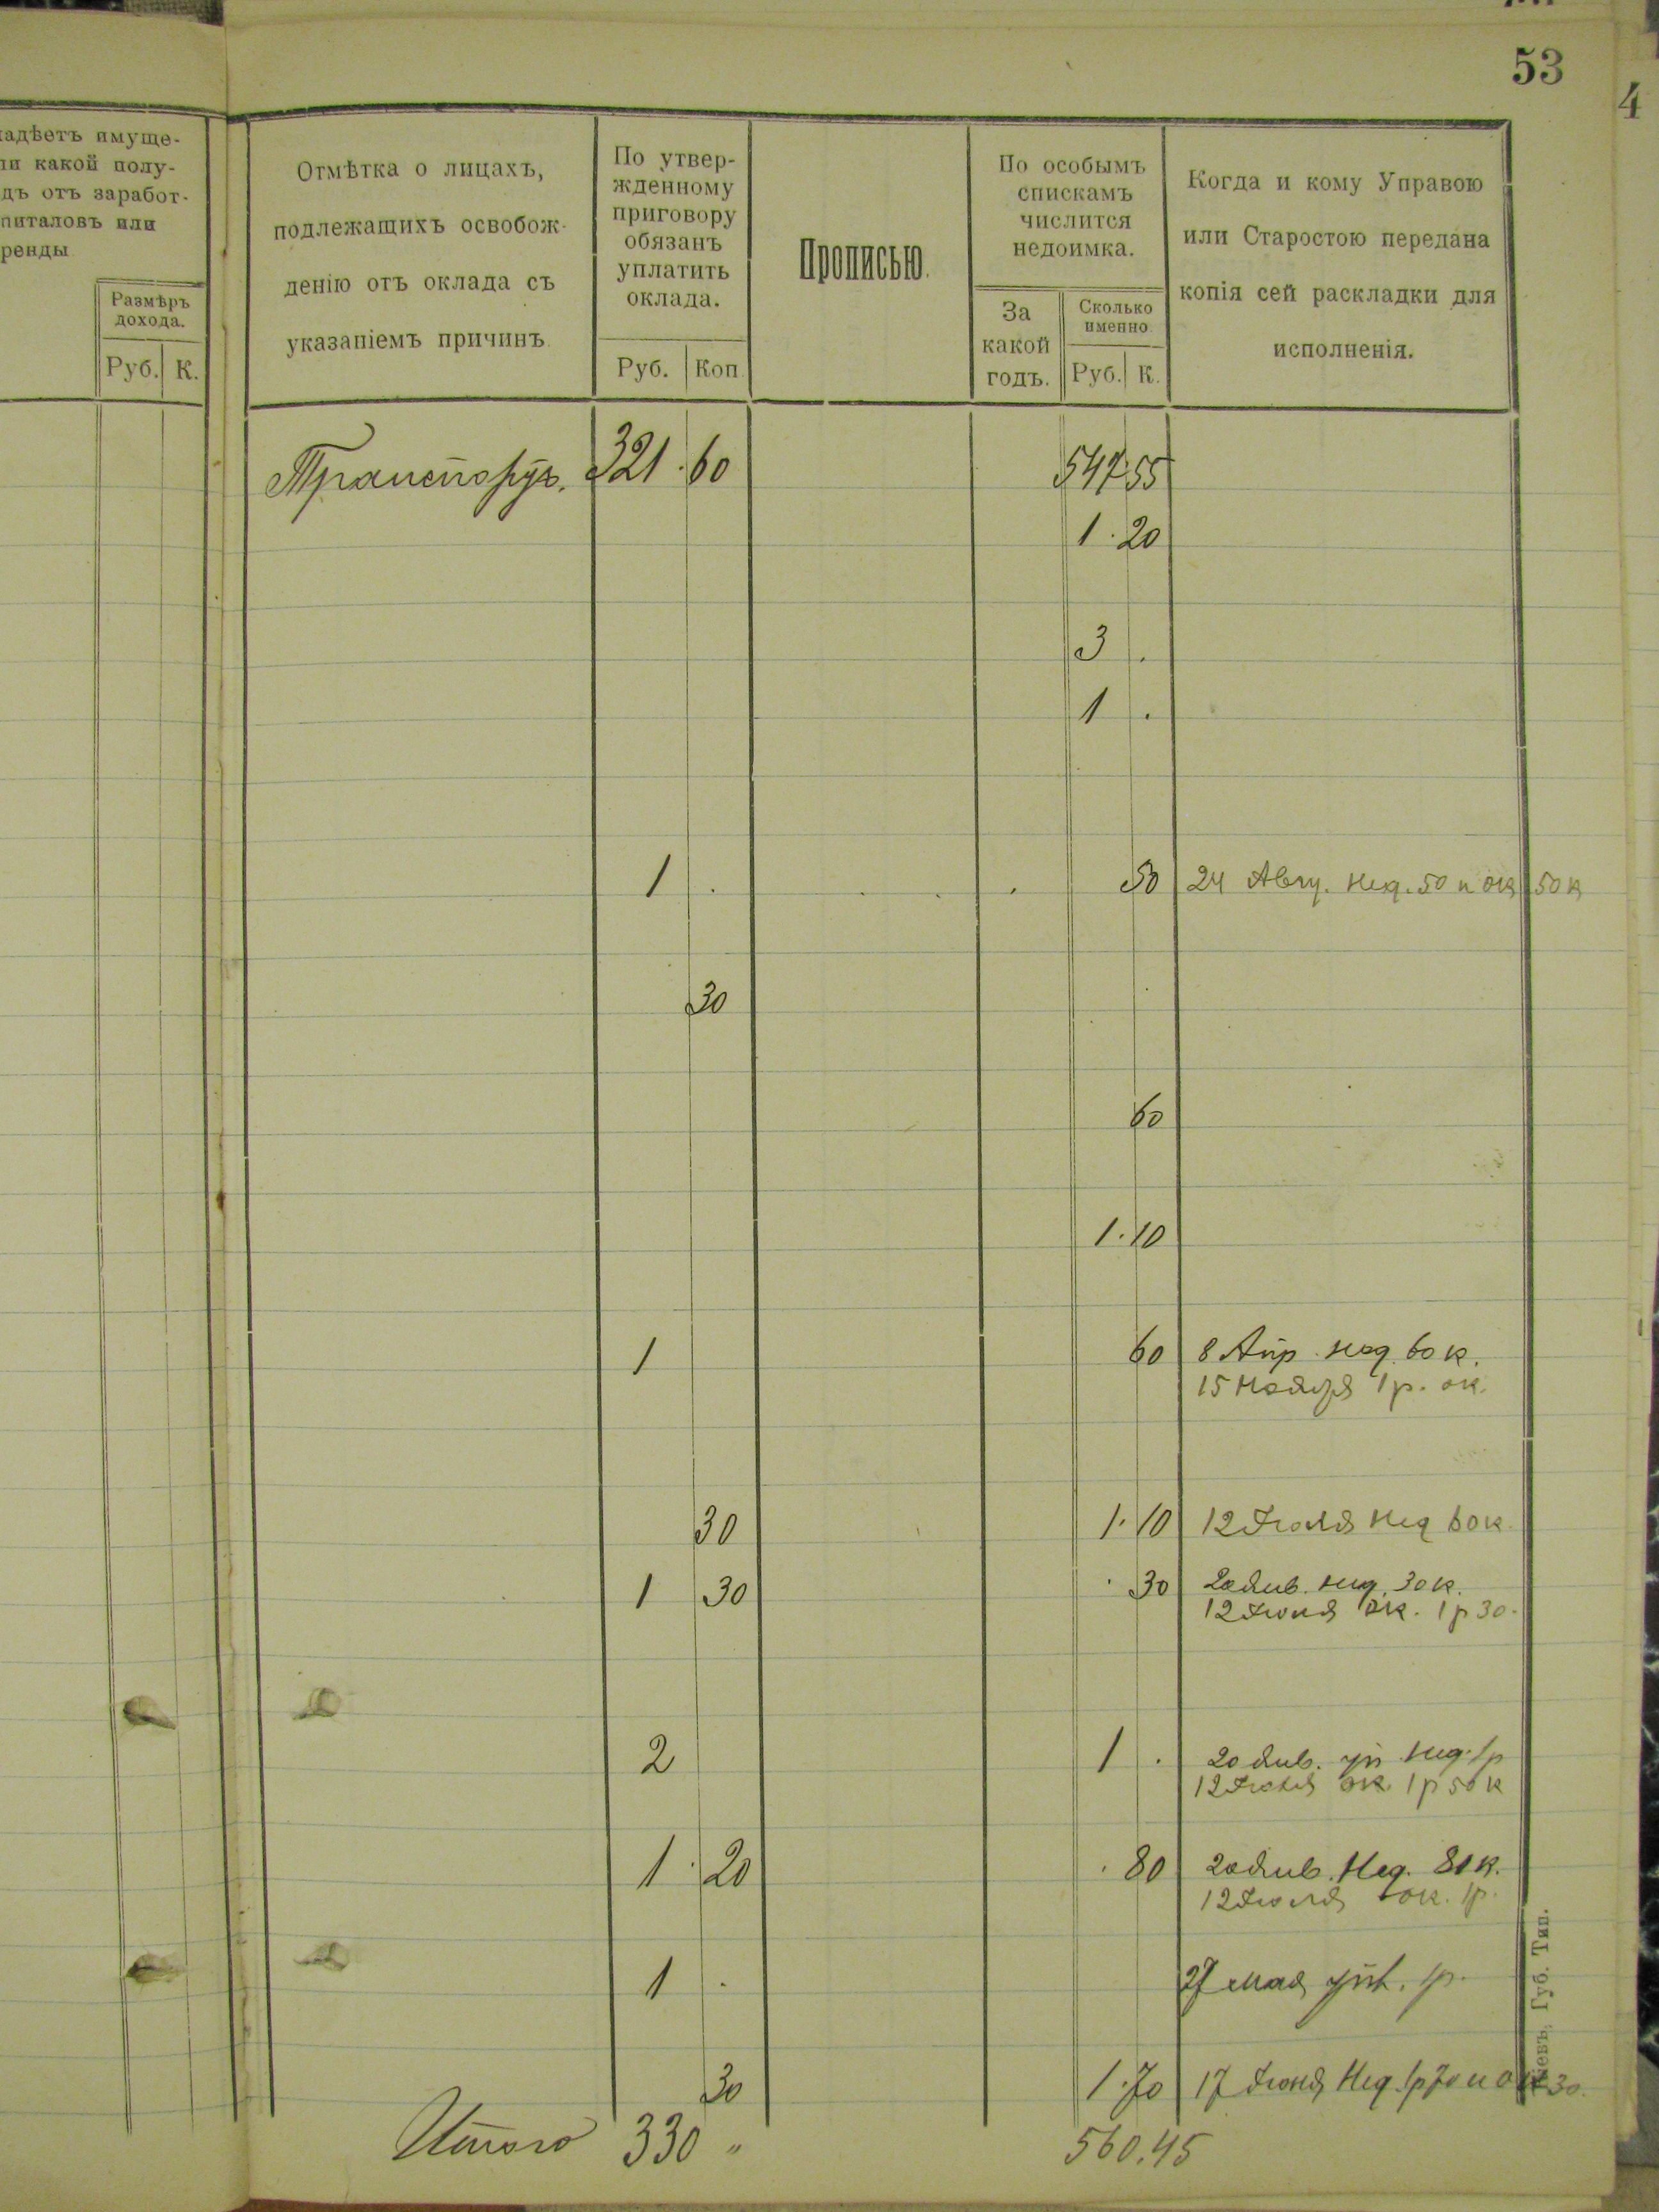 53
4
ладѣетъ имуще-
ли какой полу-
дъ отъ заработ-
питаловъ или
ренды
Размѣръ
дохода.
Руб. К.
Отмѣтка о лицахъ,
подлежащихъ освобож-
денію отъ оклада съ
указаніемъ причинъ.
По утвер-
жденному
приговору
обязанъ
уплатить
оклада.
Руб. Коп.
Прописью.
По особымъ
спискамъ
числится
недоимка.
За
какой
годъ.
Сколько
именно.
Руб. К.
Когда и кому Управою
или Старостою передана
копія сей раскладки для
исполненія.
Транспортъ. 321 . 60 547 . 55
1 . 20
3 .
1 .
1 . 50 24 Авгу. нед. 50 и ок 50 к
30
60
1 . 10
1 60 8 Апр. нед. 60 к.
15 Ноября 1 р. ок.
30 1 . 10 12 Іюля нед 60 к.
1 30 . 30 20 Янв. нед. 30 к.
12 Іюля ок. 1 р 30.
2 1 . 20 Янв. уп нед. 1 р
12 Іюля ок. 1 р 50 к
1 . 20 . 80 20 Янв. Нед. 80 к.
12 Іюля ок. 1 р.
1 . 27 мая упл. 1 р.
30 1 . 70 17 Іюня Нед. 1 р 70 и ок 30.
Итого 330 „ 560.45
Кіевъ, Губ. Тип.